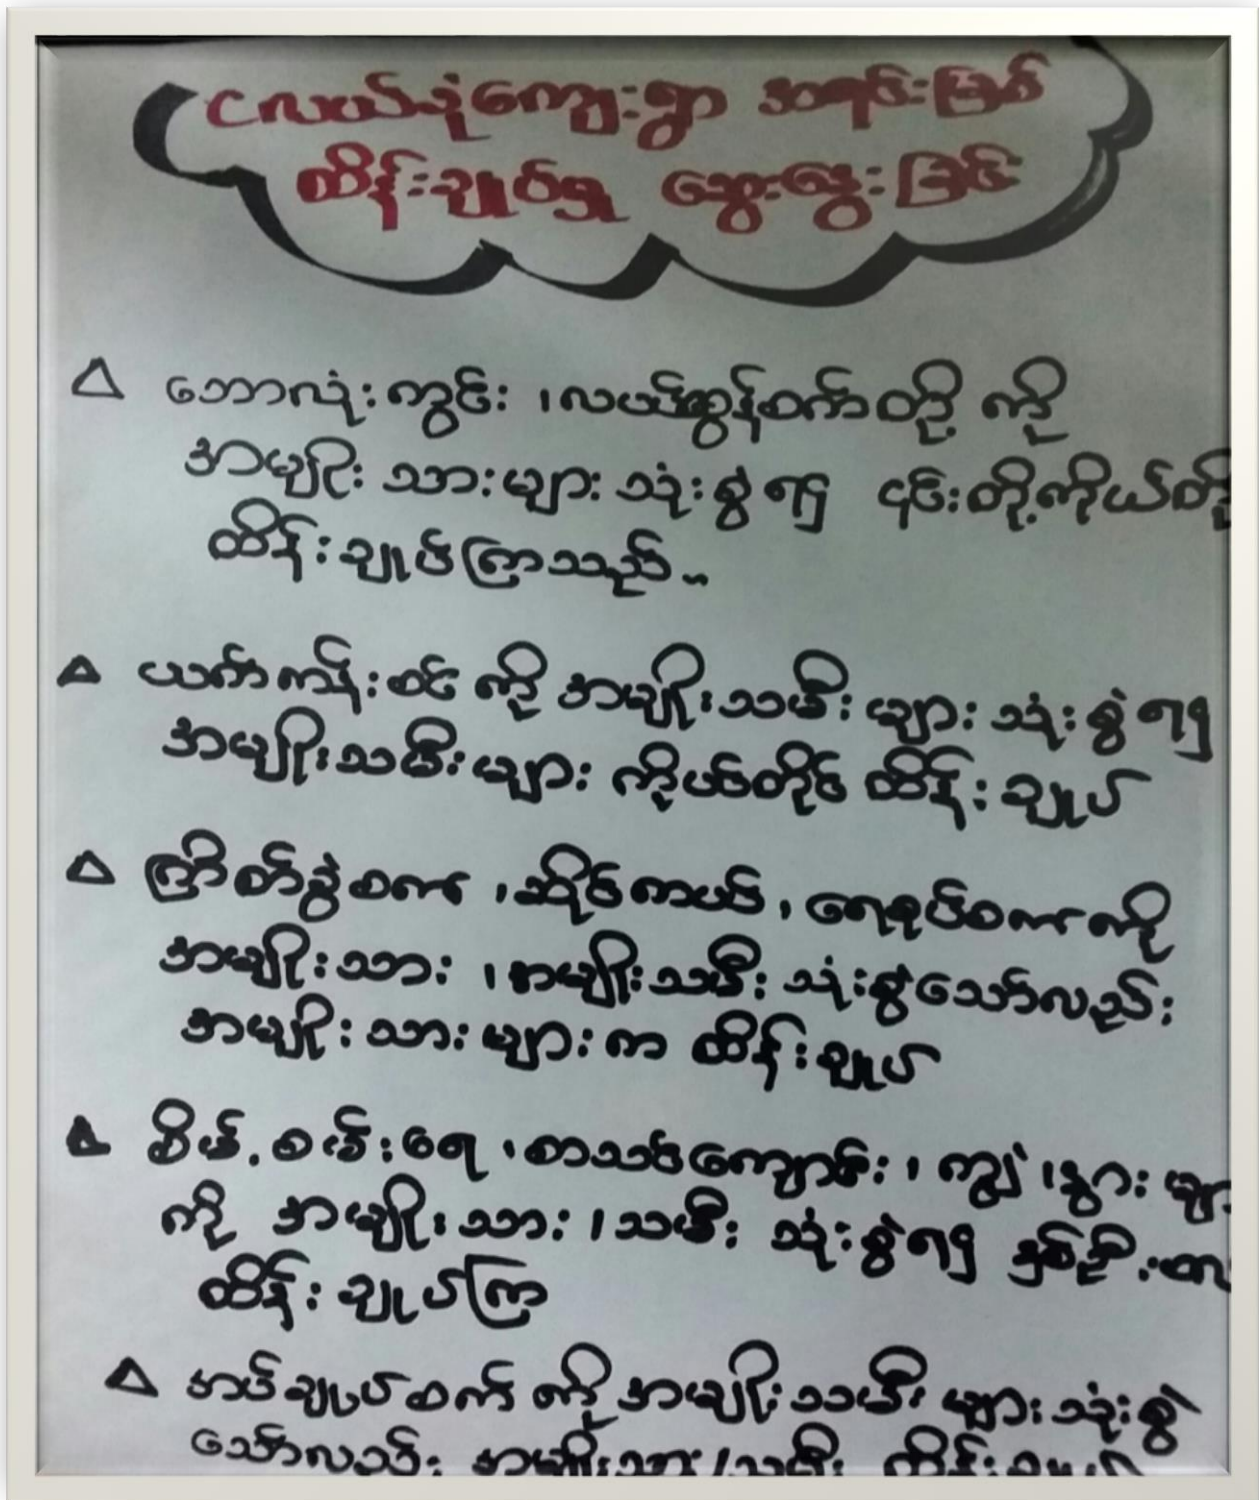 ငလယ်ဒုံကျေးရွာ အရင်းမြစ်
ထိန်းချုပ်မှု ဆွေးနွေးခြင်း
△ ဘောလုံးကွင်း ၊ လယ်ထွန်စက်တို့ ကို
အမျိုးသားများ သုံးစွဲရ၍ ၎င်းတို့ကိုယ်တို
ထိန်းချုပ်ကြသည်..
△ ယက်ကန်းစင် ကို အမျိုးသမီးများ သုံးစွဲရ၍
အမျိုးသမီးများ ကိုယ်တိုင် ထိန်းချုပ်
△ ကြိတ်ခွဲစက် ၊ ဆိုင်ကယ် ၊ ရေစုပ်စက်ကို
အမျိုးသား ၊ အမျိုးသမီး သုံးစွဲသော်လည်း
အမျိုးသားများက ထိန်းချုပ်
△ စိမ့်စမ်းရေ ၊ စာသင်ကျောင်း ၊ ကျွဲ ၊ နွား
ကို အမျိုးသား ၊ သမီး သုံးစွဲရ၍ နှစ်ဦး
ထိန်းချုပ်ကြ
△ အပ်ချုပ်စက် ကို အမျိုးသမီး များ သုံးစွဲ
သော်လည်း အမျိုးသား ၊ သမီး ထိန်းချုပ်